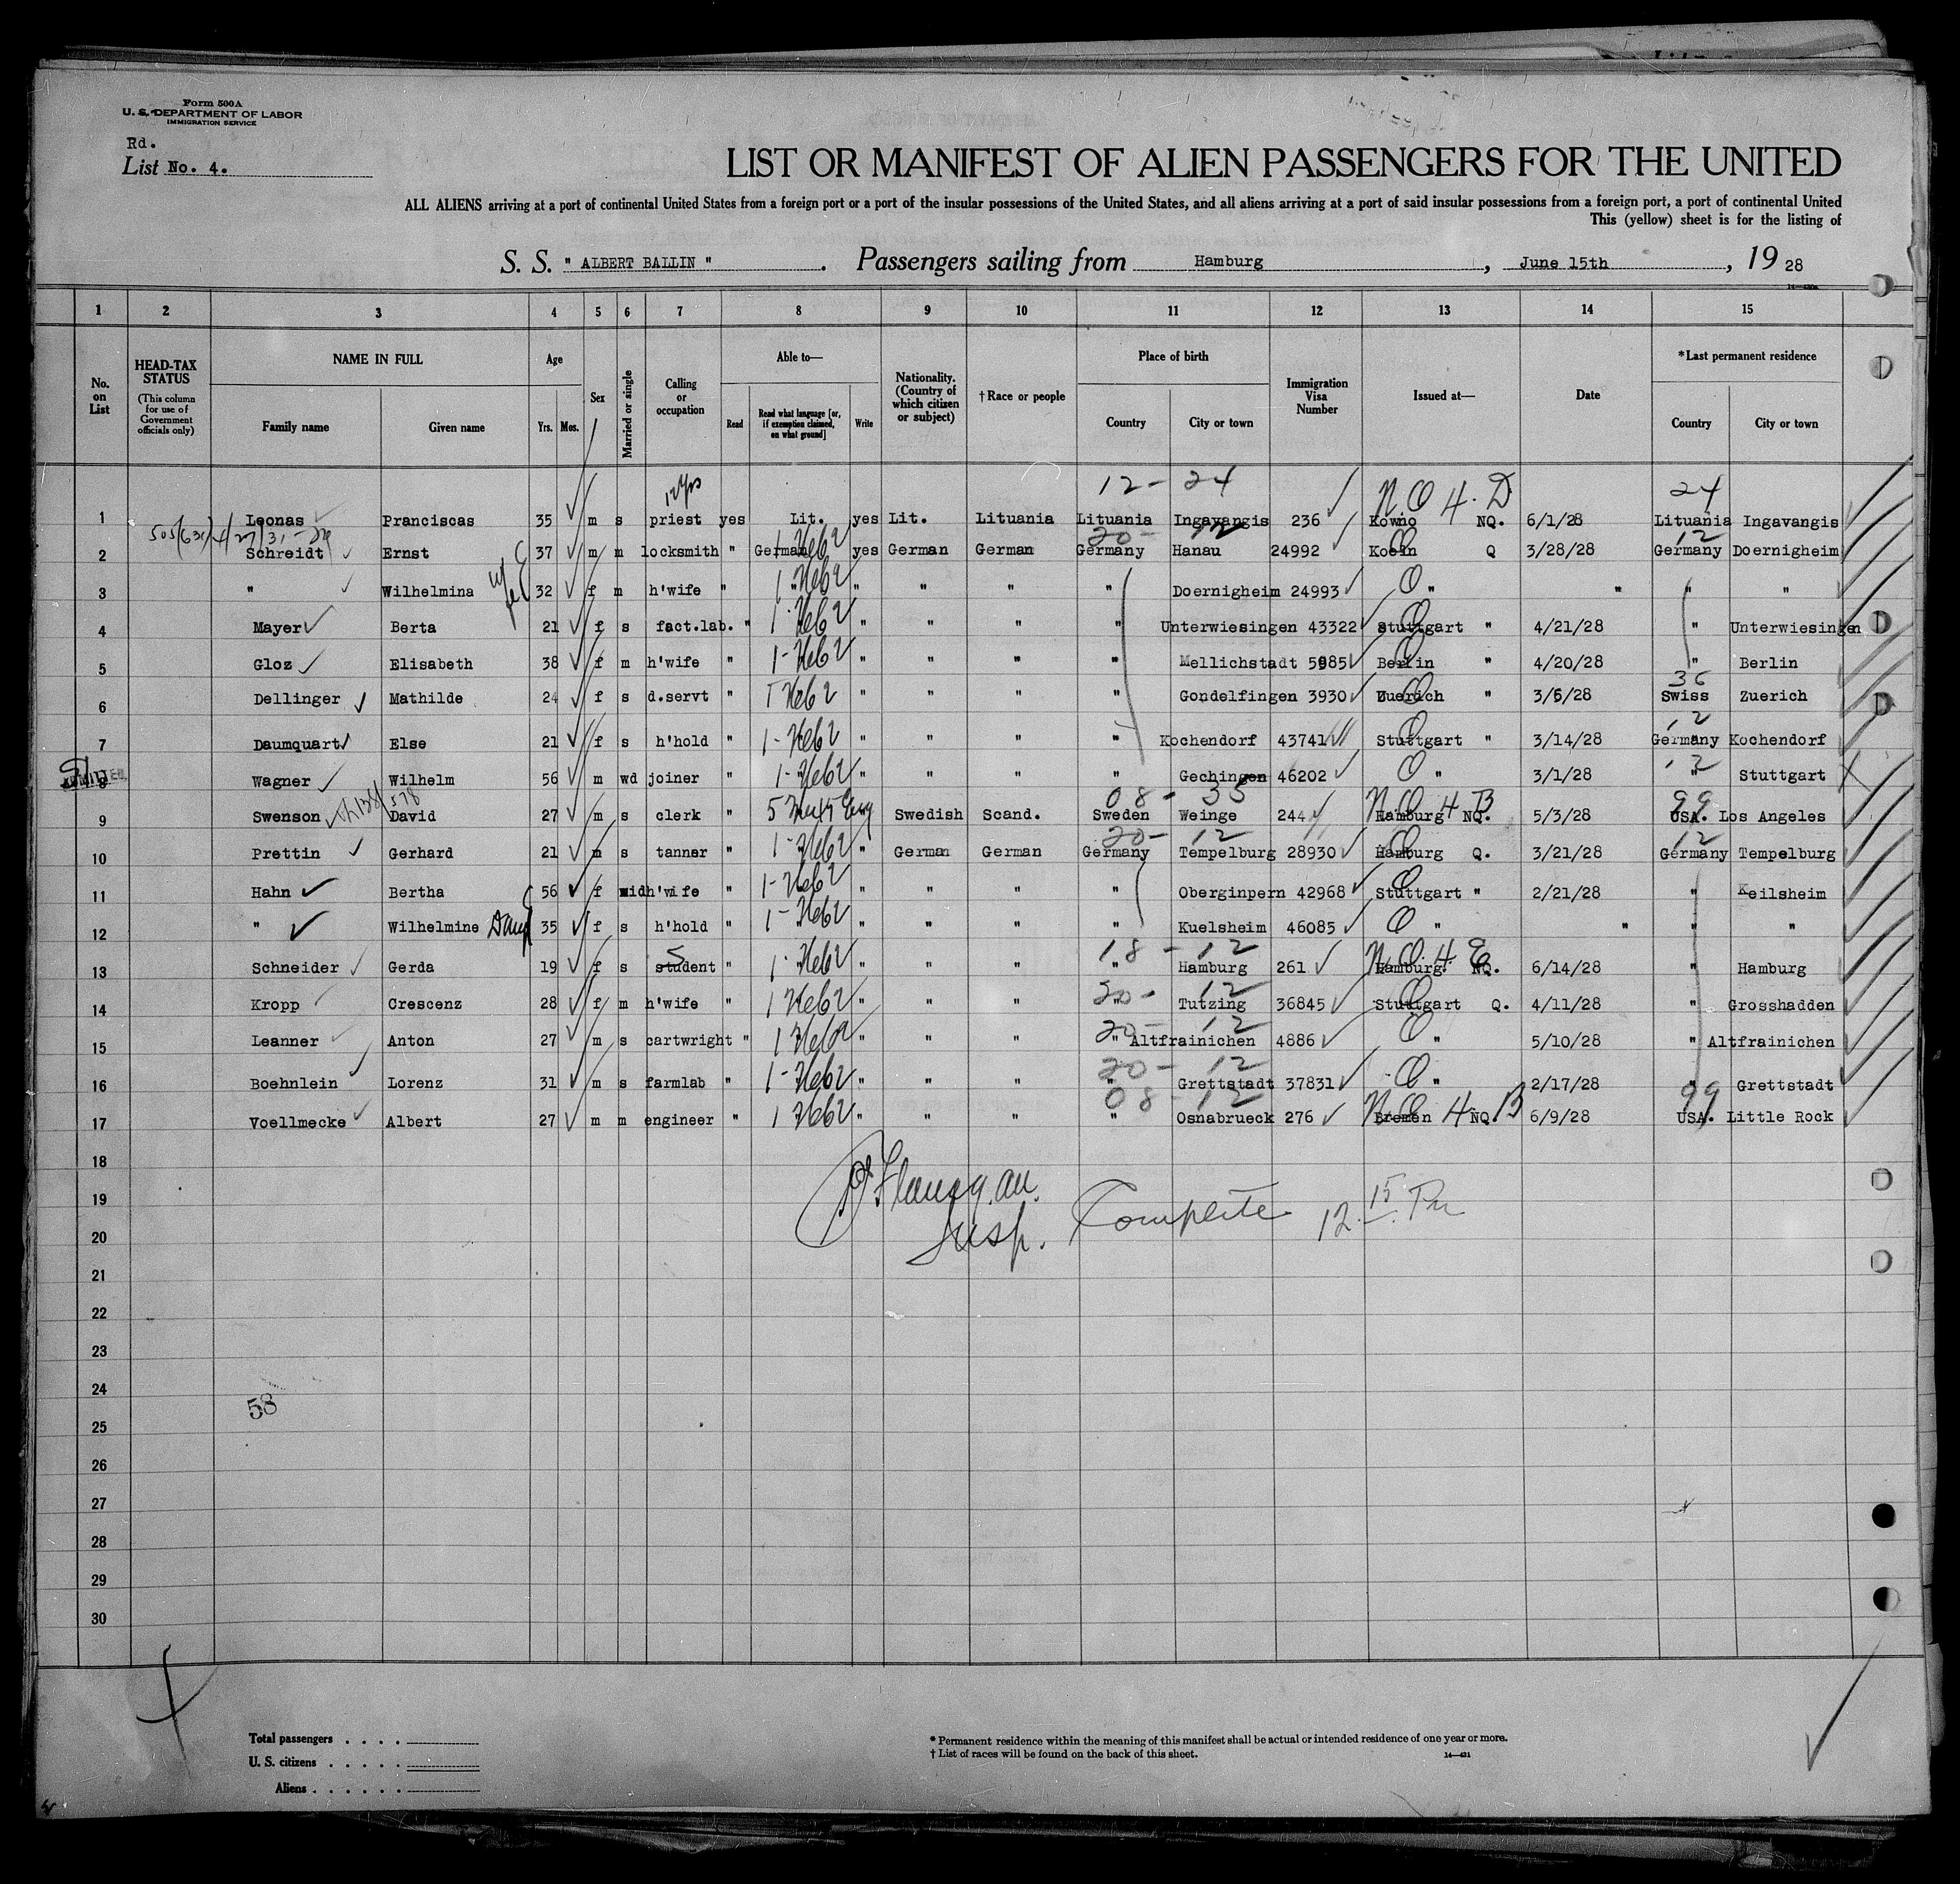 Form 500A
U. S. DEPARTMENT OF LABOR
IMMIGRATION SERVICE
Rd.
List No. 4.
LIST OR MANIFEST OF ALIEN PASSENGERS FOR THE UNITED
ALL ALIENS arriving at a port of continental United States from a foreign port or a port of the insular possessions of the United States, and all aliens arriving at a port of said insular possessions from a foreign port, a port of continental United
This (yellow) sheet is for the listing of
S. S. " ALBERT BALLIN ". Passengers sailing from Hamburg, June 15th, 19 28
1 2 3 4 5 6 7 8 9 10 11 12 13 14 15
No. on List
HEAD-TAX STATUS (This column for use of Government officials only)
NAME IN FULL Family name Given name
Age Yrs. Mos.
Sex
Married or single
Calling or occupation
Able to— Read Read what language [or, if exemption claimed, on what ground] Write
Nationality. (Country of which citizen or subject)
† Race or people
Place of birth Country City or town
Immigration Visa Number
Issued at—
Date
*Last permanent residence Country City or town
12 yrs 12 - 24 N O 4 D 24
1 Leonas Pranciscas 35 m s priest yes Lit. yes Lit. Lituania Lituania Ingavangis 236 Kowno NQ. 6/1/28 Lituania Ingavangis
20- 12 12
2 Schreidt Ernst 37 m m locksmith " German yes German German Germany Hanau 24992 Koeln Q 3/28/28 Germany Doernigheim
3 " Wilhelmina wife 32 f m h'wife " " " " " " Doernigheim 24993 " " " "
4 Mayer Berta 21 f s fact.lab. " " " " " Unterwiesingen 43322 Stuttgart " 4/21/28 " Unterwiesingen
5 Gloz Elisabeth 38 f m h'wife " " " " " Mellichstadt 5985 Berlin " 4/20/28 " Berlin
36
6 Dellinger Mathilde 24 f s d.servt " " " " " Gondelfingen 3930 Zuerich " 3/6/28 Swiss Zuerich
12
7 Daumquart Else 21 f s h'hold " " " " " Kochendorf 43741 Stuttgart " 3/14/28 Germany Kochendorf
12
8 Wagner Wilhelm 56 m wd joiner " " " " " Gechingen 46202 " 3/1/28 " Stuttgart
08 - 35 N O 4 B 99
9 Swenson David 27 m s clerk " " Swedish Scand. Sweden Weinge 244 Hamburg NQ. 5/3/28 USA. Los Angeles
20- 12 12
10 Prettin Gerhard 21 m s tanner " " German German Germany Tempelburg 28930 Hamburg Q. 3/21/28 Germany Tempelburg
11 Hahn Bertha 56 f wid h'wife " " " " " Oberginpern 42968 Stuttgart " 2/21/28 " Keilsheim
12 " Wilhelmine Daug 35 f s h'hold " " " " " Kuelsheim 46085 " " " "
18 - 12 N O 4 E
13 Schneider Gerda 19 f s student " " " " " Hamburg 261 Hamburg NQ. 6/14/28 " Hamburg
20- 12
14 Kropp Crescenz 28 f m h'wife " " " " " Tutzing 36845 Stuttgart Q. 4/11/28 " Grosshadden
20- 12
15 Leanner Anton 27 m s cartwright " " " " " Altfrainichen 4886 " 5/10/28 " Altfrainichen
20- 12
16 Boehnlein Lorenz 31 m s farmlab " " " " " Grettstadt 37831 " 2/17/28 " Grettstadt
08 - 12 N O 4 B 99
17 Voellmecke Albert 27 m m engineer " " " " " Osnabrueck 276 Bremen NQ. 6/9/28 USA. Little Rock
18
19
20
Insp. Complete 12.15 Pm
21
22
23
24
58
25
26
27
28
29
30
Total passengers . . . .
U. S. citizens . . . . .
Aliens . . . . . .
* Permanent residence within the meaning of this manifest shall be actual or intended residence of one year or more.
† List of races will be found on the back of this sheet.
14—431